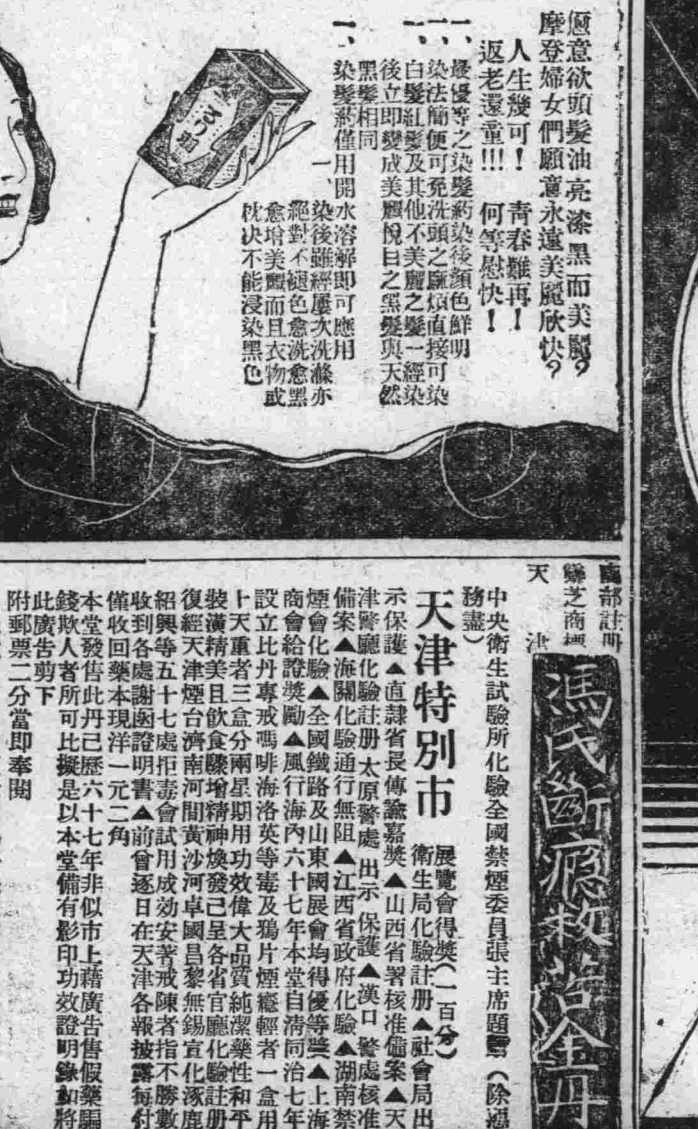 愿意欲頭髮油亮漆黑而美麗?
摩登婦女們願意永遠美麗欣快?
人生幾可! 青春難再!
返老還童!!! 何等慰快!
一、最優等之染髮葯染後顏色鮮明
一、染法簡便可免洗頭之麻煩直接可染
一、白髮紅髮及其他不美麗之髮一經染
後立即變成美麗悅目之黑髮與天然
黑髮相同
一、染髮葯僅用開水溶解即可應用
一、染後雖經屢次洗滌亦
絕對不褪色愈洗愈黑
愈增美麗而且衣物或
枕決不能浸染黑色
商部註冊
芝商標
天津
馮氏斷癮救苦金丹
中央衛生試驗所化驗全國禁煙委員張主席題 (除
務盡)
天津特別市
展覽會得獎(一百分)
衛生局化驗註册▲社會局出
示保護▲直隷省長傳諭嘉獎▲山西省署核准備案▲天
津警廳化驗註册太原警處出示保護▲漢口警處核准
備案▲海關化驗通行無阻▲江西省政府化驗▲湖南禁
煙會化驗▲全國鐵路及山東國展會均得優等獎▲上海
商會給證獎勵▲風行海內六十七年本堂自淸同治七年
設立比丹專戒嗎啡海洛英等毒及鴉片煙癮輕者一盒用
十天重者三盒分兩星期用功效偉大品質純潔藥性和平
裝潢精美且飲食驟增精神煥發已呈各省官廳化驗註册
復經天津煙台濟南河間黃沙河卓國昌黎無錫宣化涿鹿
紹興等五十七處拒毒會試用成効安著戒陳者指不勝數
收到各處謝函證明書▲前曾逐日在天津各報披露每付
僅收回藥本現洋一元二角
本堂發售此丹已歷六十七年非似市上藉廣告售假藥騙
錢欺人者所可比擬是以本堂備有影印功效證明錄如將
此廣告剪下
附郵票二分當即奉閱